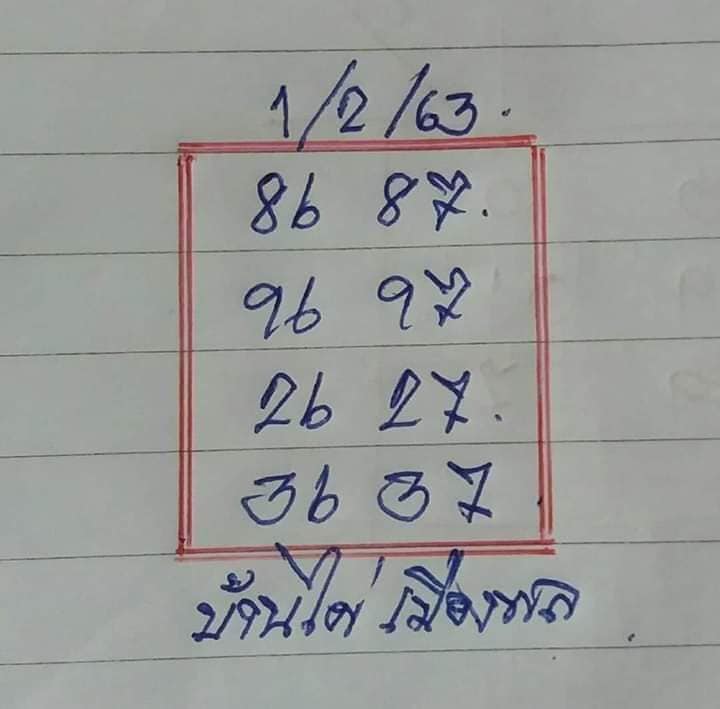 1/2/63.
86 87.
96 97
26 27.
36 37
บ้านไผ่ เมืองพล